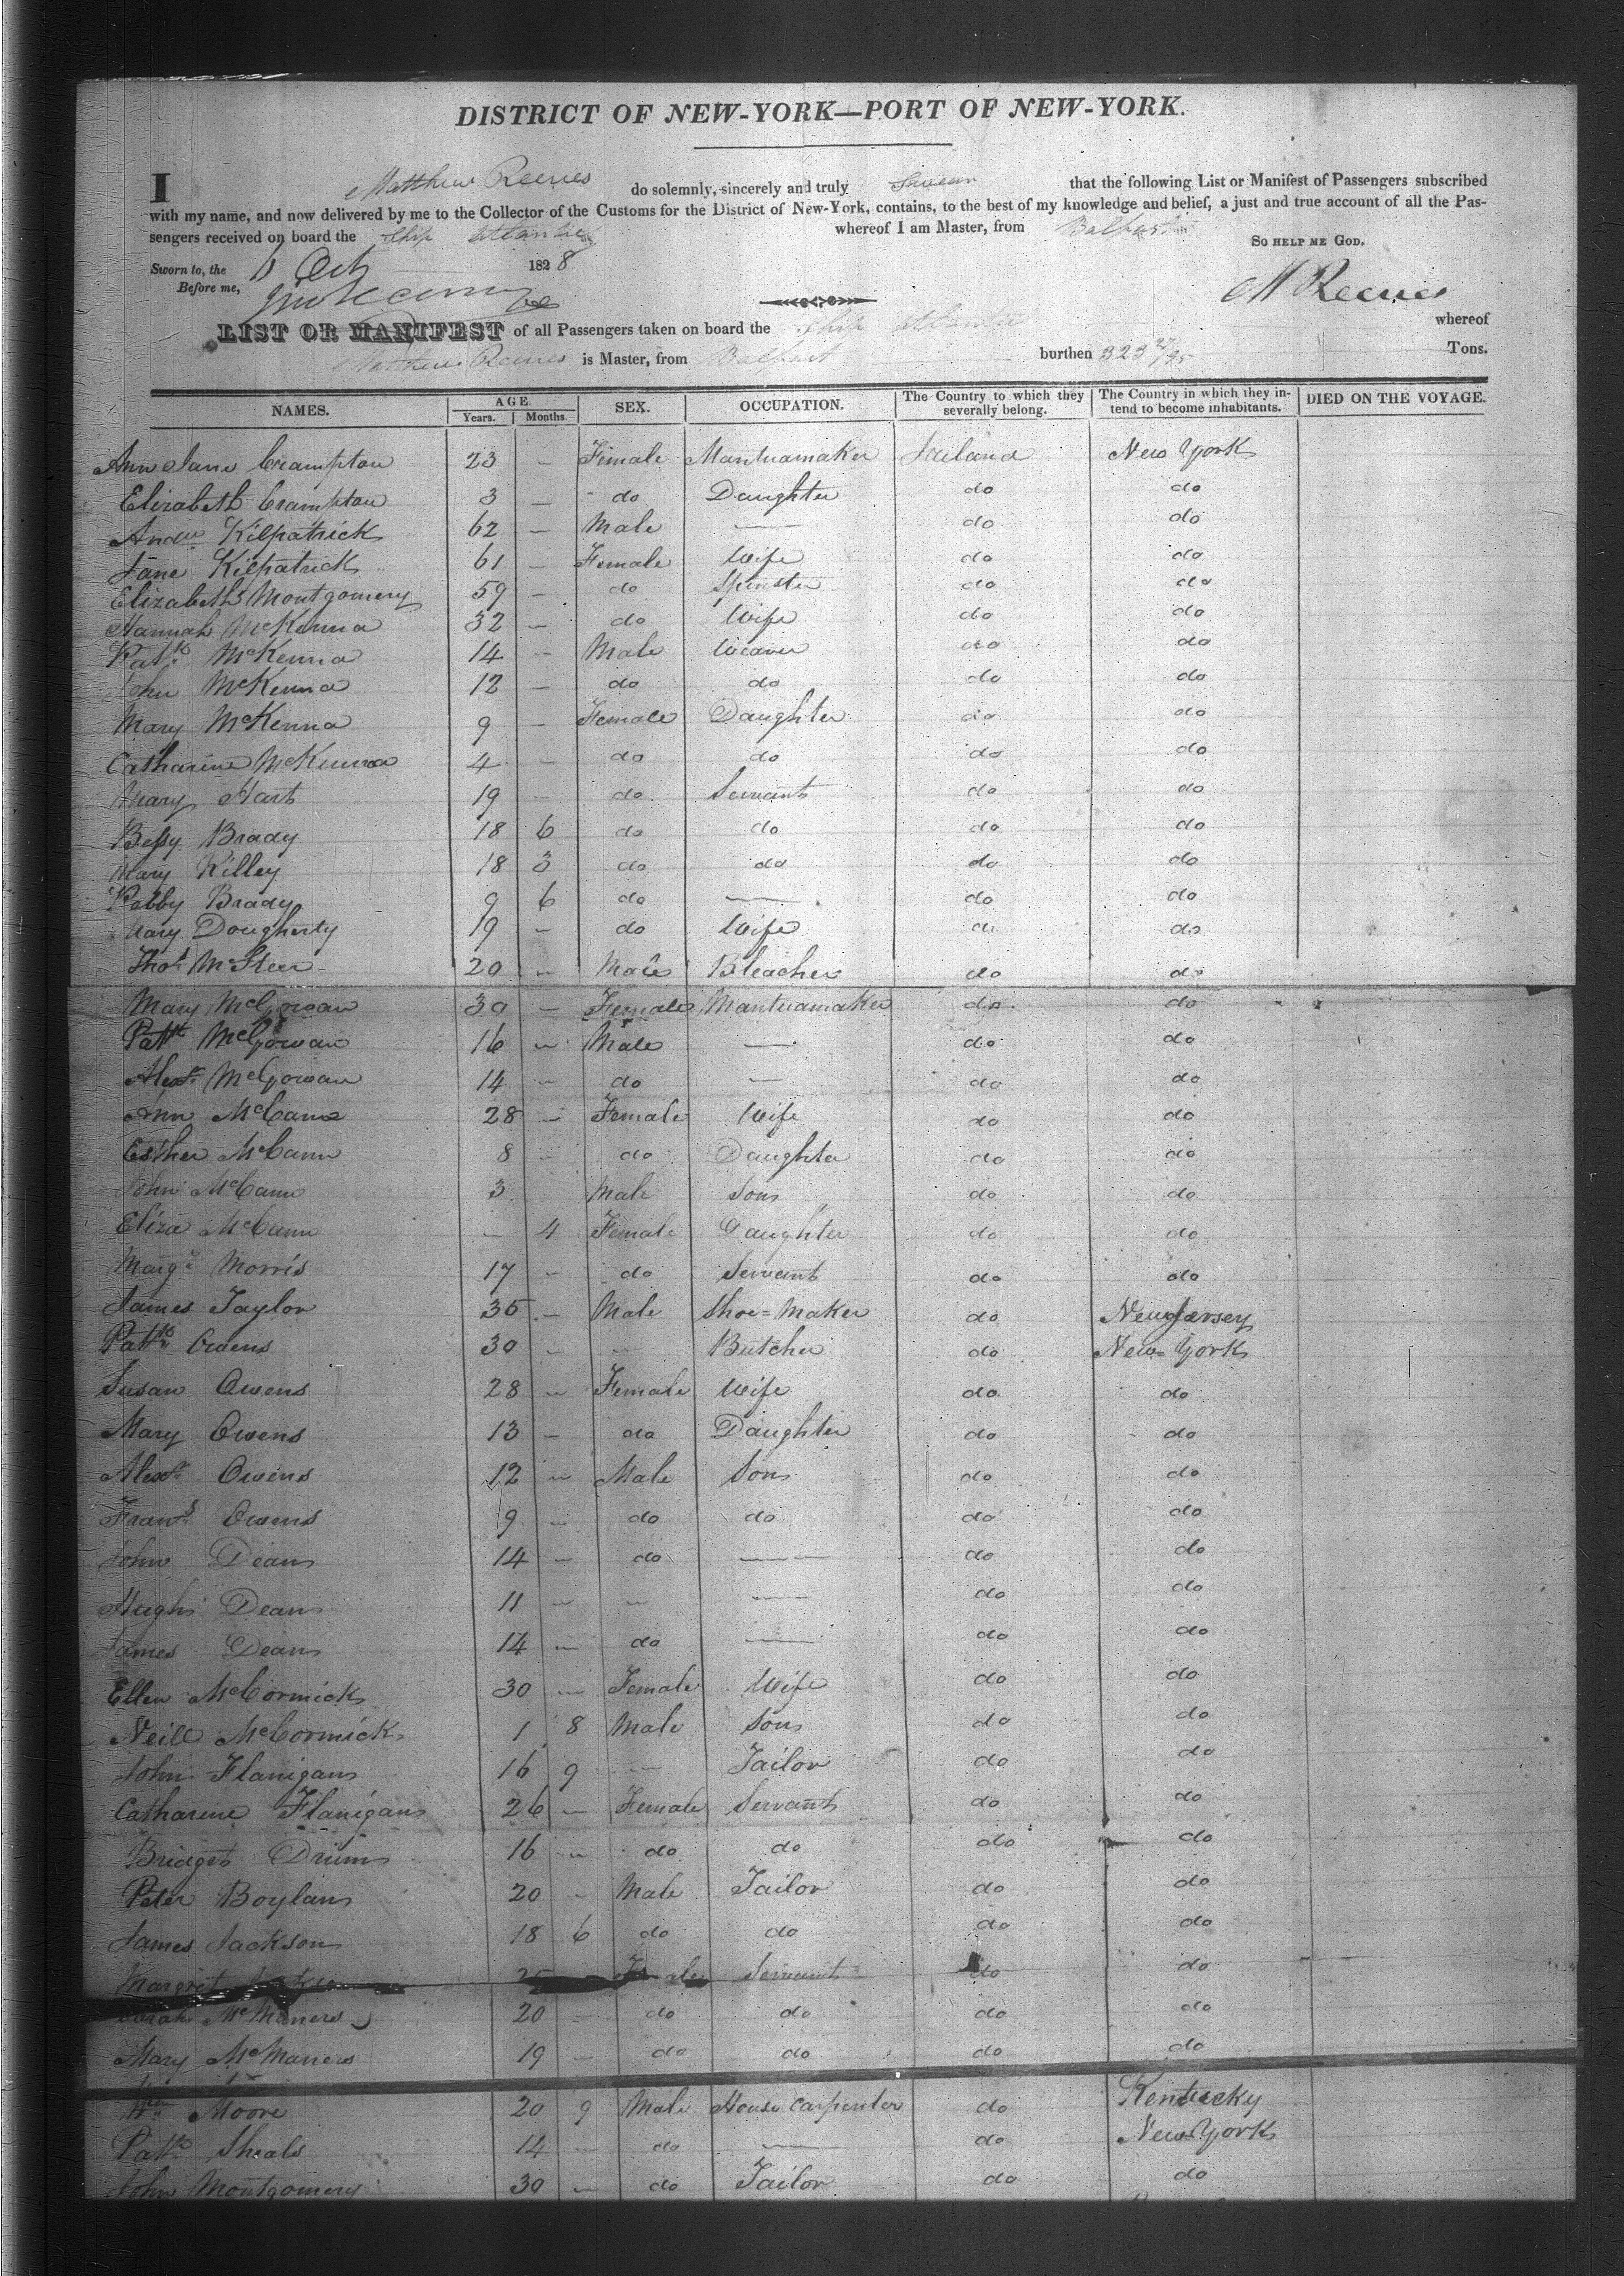 DISTRICT OF NEW-YORK—PORT OF NEW-YORK.
I Matthew Reenes do solemnly, sincerely and truly Swear that the following List or Manifest of Passengers subscribed
with my name, and now delivered by me to the Collector of the Customs for the District of New-York, contains, to the best of my knowledge and belief, a just and true account of all the Pas-
sengers received on board the Ship Atlantic whereof I am Master, from Belfast
SO HELP ME GOD.
Sworn to, the Oct 1828
Before me,
M Reenes
LIST OR MANIFEST of all Passengers taken on board the Ship Atlantic whereof
Matthew Reenes is Master, from Belfast burthen 323 27/95 Tons.
NAMES. AGE. Years. Months. SEX. OCCUPATION. The Country to which they severally belong. The Country in which they intend to become inhabitants. DIED ON THE VOYAGE.
Ann Jane Crampton 23 — Female Mantuamaker Ireland New York
Elizabeth Crampton 3 — do Daughter do do
Andw Kilpatrick 62 — Male — do do
Jane Kilpatrick 61 — Female Wife do do
Elizabeth Montgomery 59 — do Spinster do do
Hannah McKenna 32 — do Wife do do
Patk McKenna 14 — Male Weaver do do
John McKenna 12 — do do do do
Mary McKenna 9 — Female Daughter do do
Catharine McKenna 4 — do do do do
Mary Hart 19 — do Servant do do
Bessy Brady 18 6 do do do do
Mary Killey 18 3 do do do do
Pebby Brady 9 6 do — do do
Mary Dougherty 19 — do Wife do do
Thos McSteer 20 — Male Bleacher do do
Mary McGowan 30 — Female Mantuamaker do do
Patk McGowan 16 — Male — do do
Alexr McGowan 14 — do — do do
Ann McCann 28 — Female Wife do do
Esther McCann 8 — do Daughter do do
John McCann 3 Male Son do do
Eliza McCann — 4 Female Daughter do do
Margt Morris 17 — do Servant do do
James Taylor 35 — Male Shoe=Maker do New Jersey
Patk Owens 30 — — Butcher do New York
Susan Owens 28 — Female Wife do do
Mary Owens 13 — do Daughter do do
Alexr Owens 12 — Male Son do do
Frans Owens 9 — do do do do
John Dean 14 — do — do do
Hugh Dean 11 — — — do do
James Dean 14 — do — do do
Ellen McCormick 30 — Female Wife do do
Neill McCormick 1 8 Male Son do do
John Flanigan 16 9 — Tailor do do
Catharine Flanigan 26 — Female Servant do do
Bridget Drum 16 — do do do do
Peter Boylan 20 — Male Tailor do do
James Jackson 18 6 do do do do
Margret 25 Female Servant do do
Sarah McManers 20 — do do do do
Mary McManers 19 — do do do do
Wm Moore 20 9 Male House Carpenter do Kentucky
Patk Sheals 14 — do — do New York
John Montgomery 30 — do Tailor do do